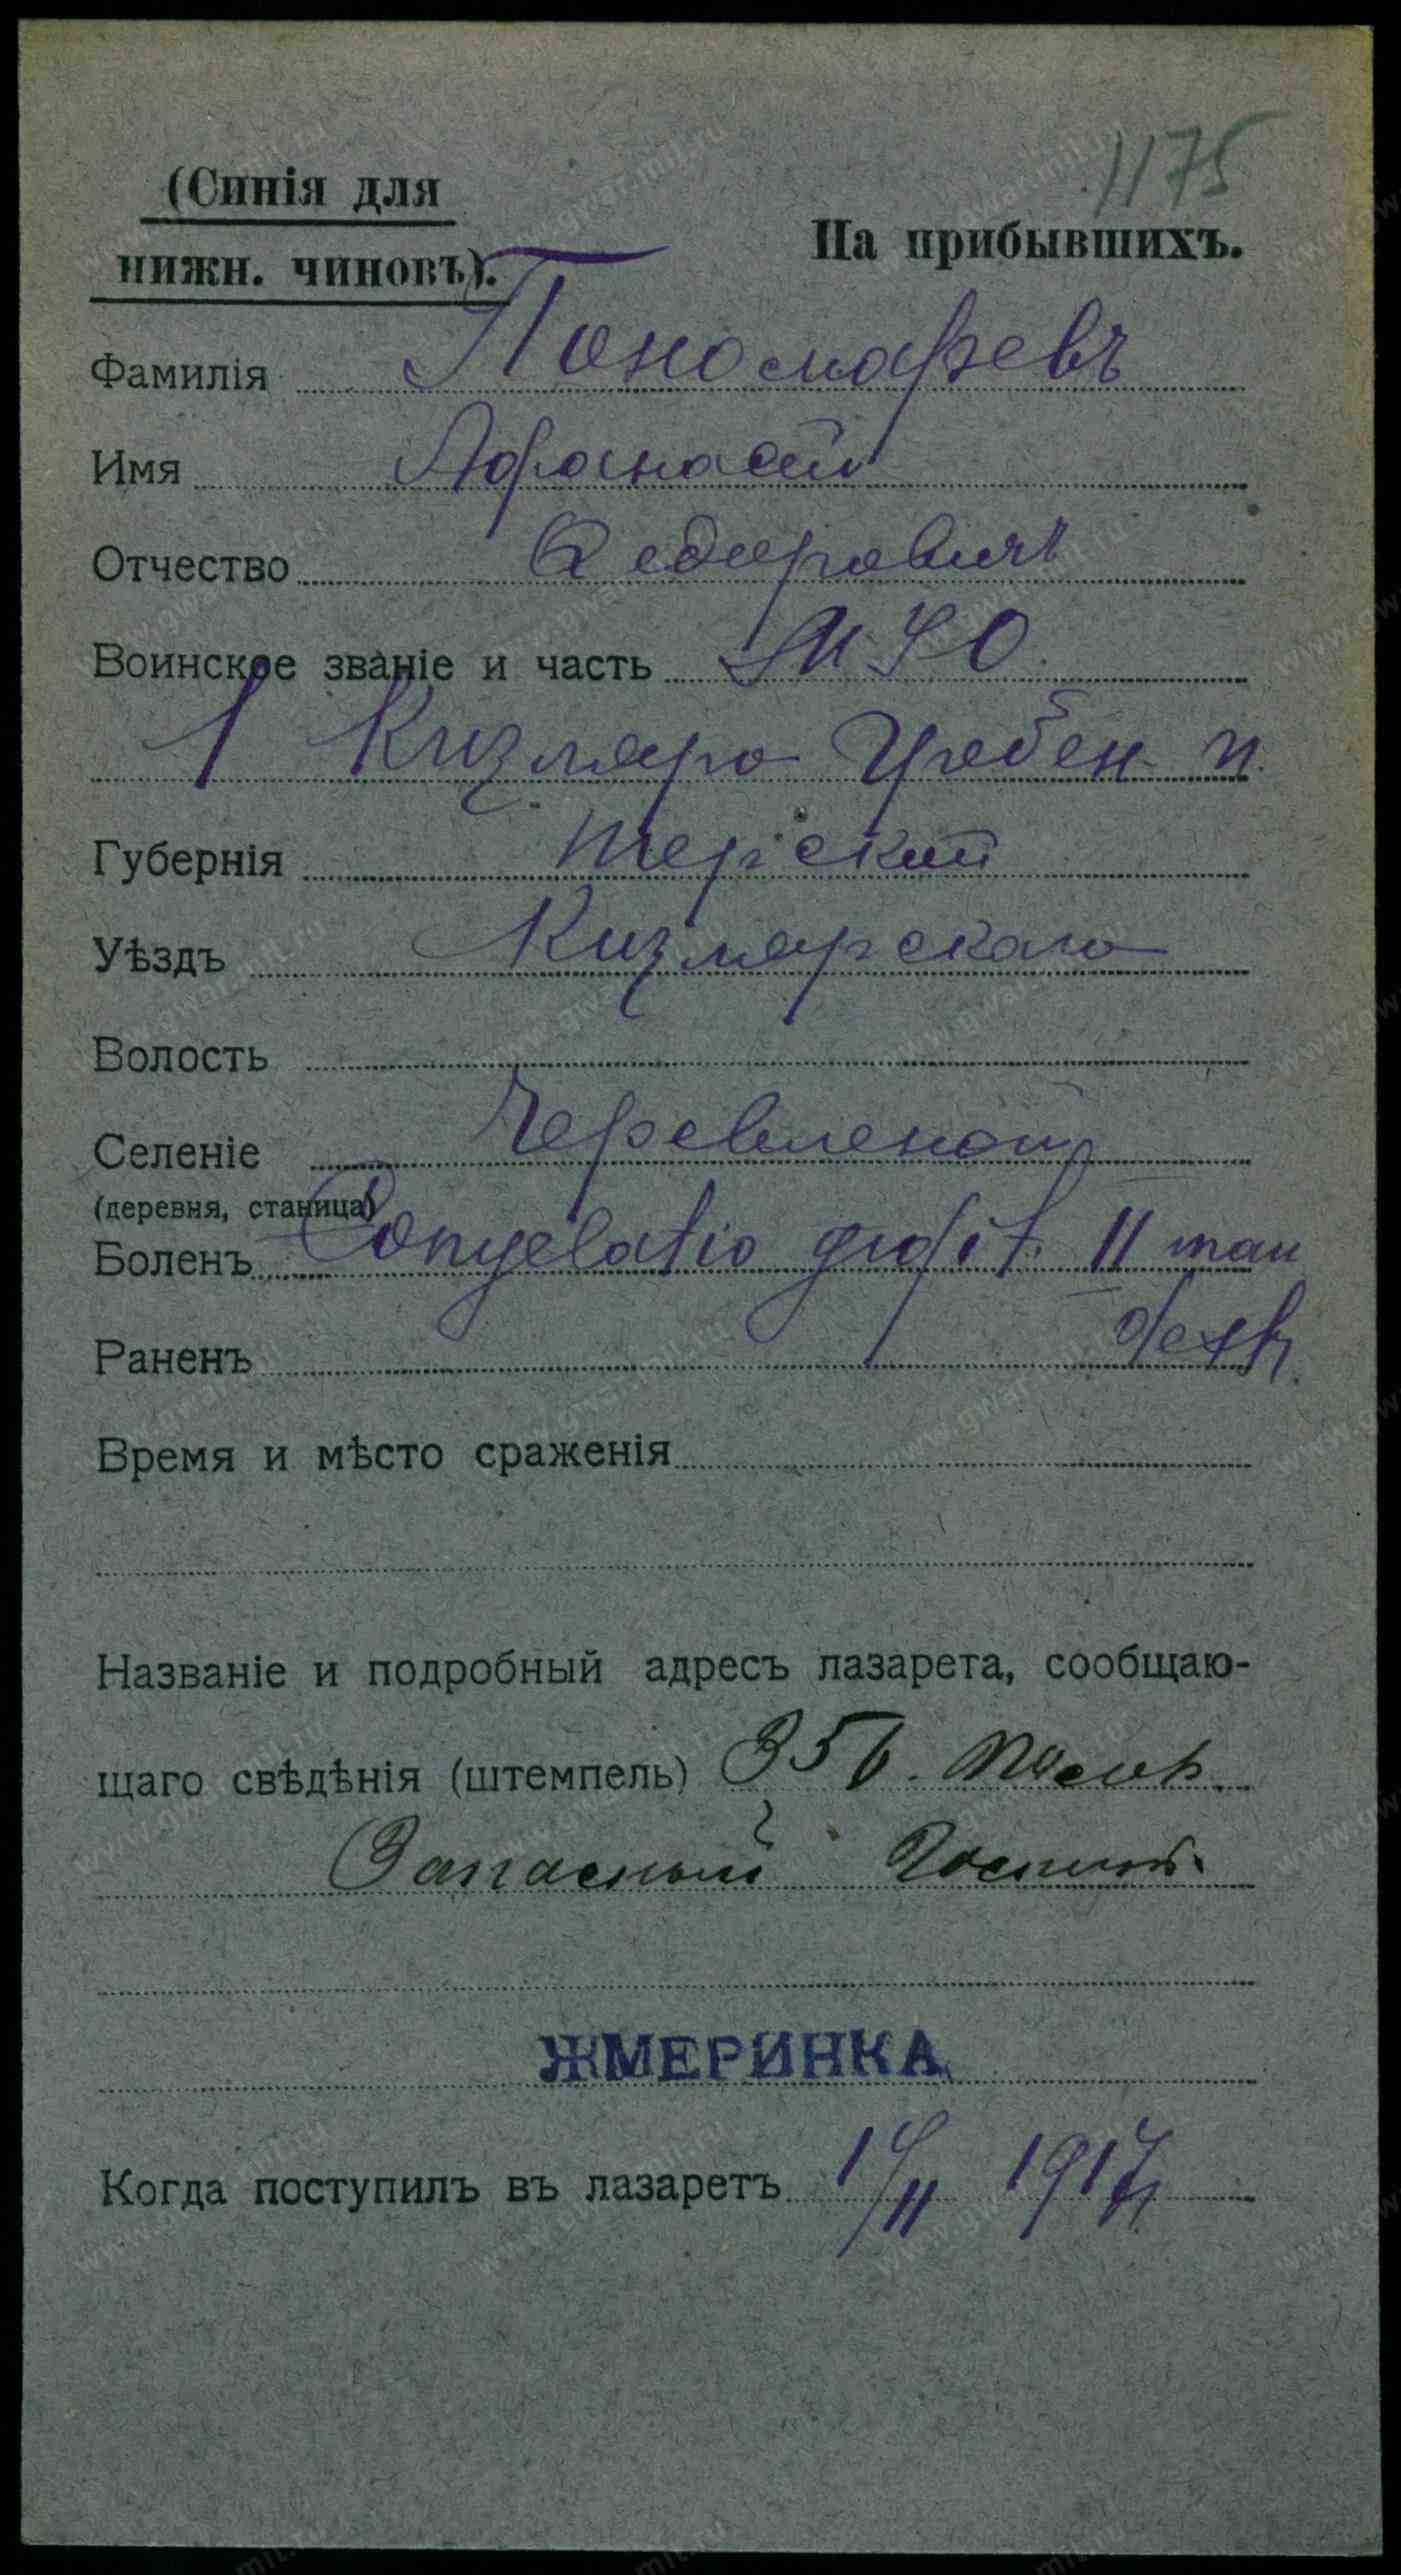 1175
(Синія для
нижн. чиновъ).
На прибывшихъ.
Фамилія Пономаревъ
Имя Афанасій
Отчество Федоровичъ
Воинское званіе и часть М У О
1 Кизляро Гребен п.
Губернія Терской
Уѣздъ Кизлярскаго
Волость
Селеніе Червленой
(деревня, станица)
Боленъ Congelatio digit. II man
Раненъ dextr.
Время и мѣсто сраженія
Названіе и подробный адресъ лазарета, сообщаю-
щаго свѣдѣнія (штемпель) 356.
Запасный Госпит.
ЖМЕРИНКА
Когда поступилъ въ лазаретъ /II 1917